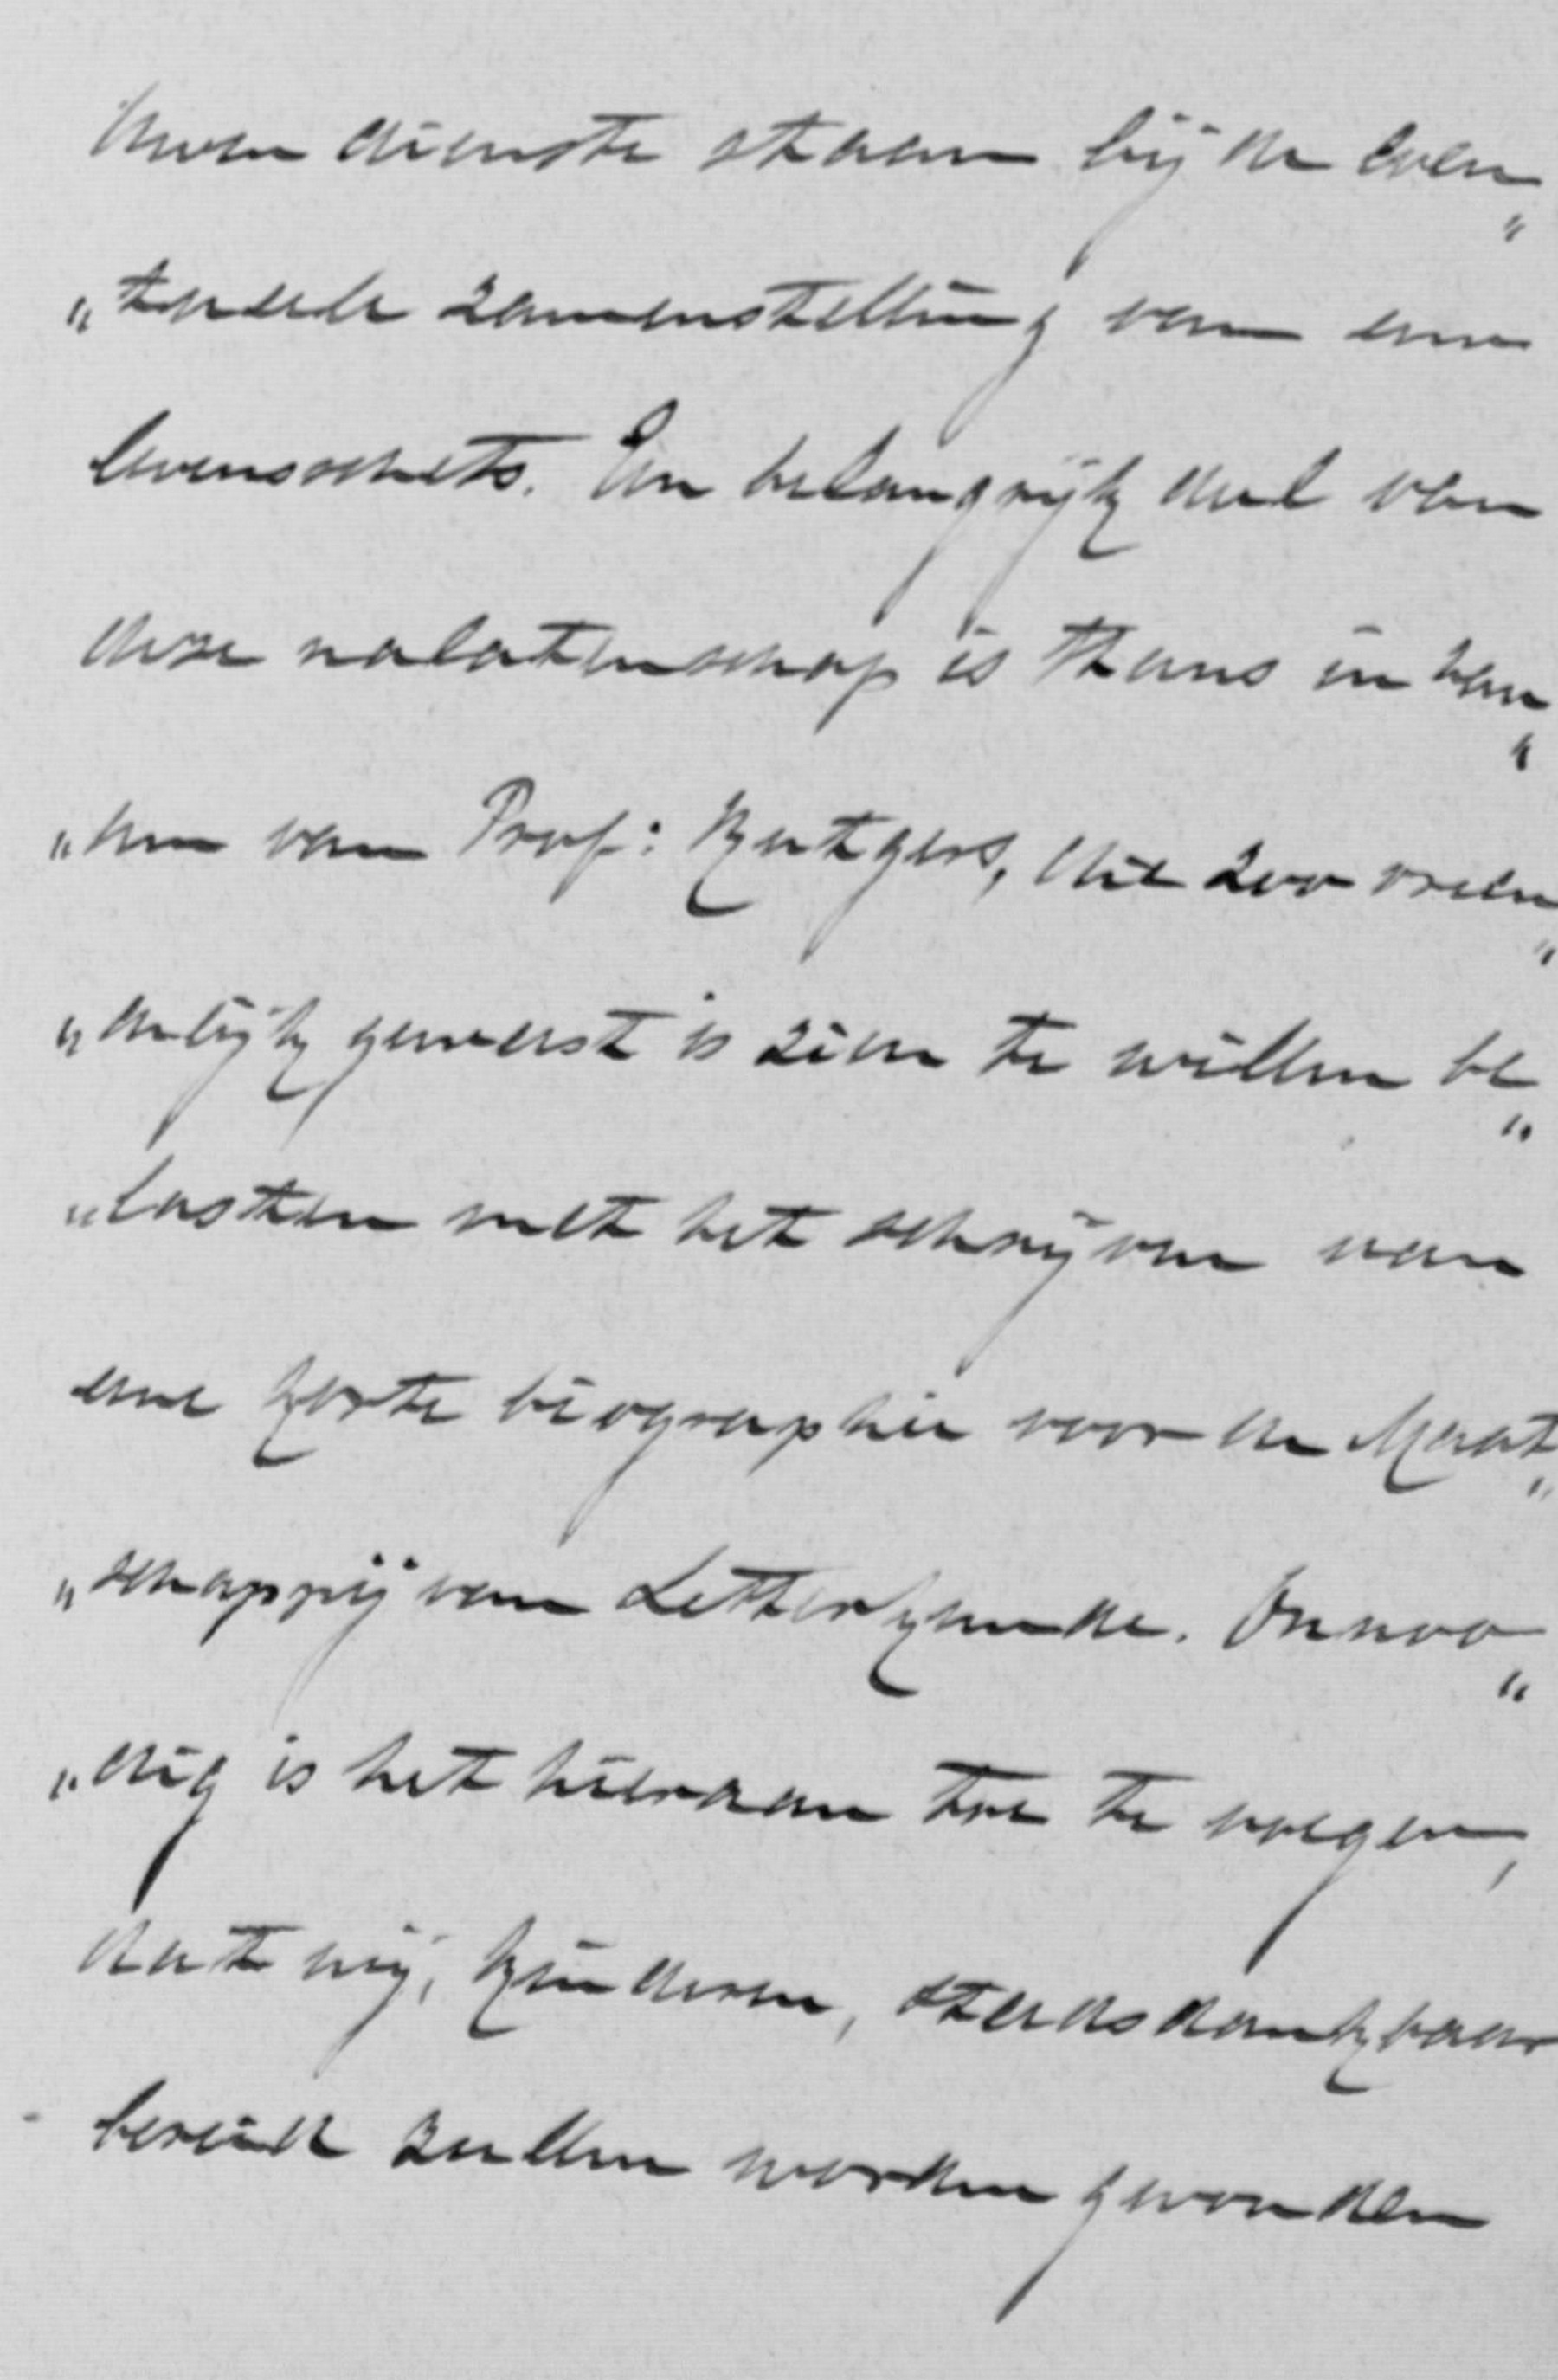 Uwen dienste staan bij de even„
„tueele zamenstelling van eene
levensschets. Een belangrijk deel van
deze nalatenschap is thans in han„
„den van Prof: Rutgers, die zoo vrien„
„delijk geweest is zien te willen be„
„lasten met het schrijven van
eene korte biographie voor de Maat„
„schappij van Letterkunde. Onnoo„
„dig is het hieraan toe te voegen,
dat wij, kinderen, steeds dankbaar
bereid zullen worden gevonden